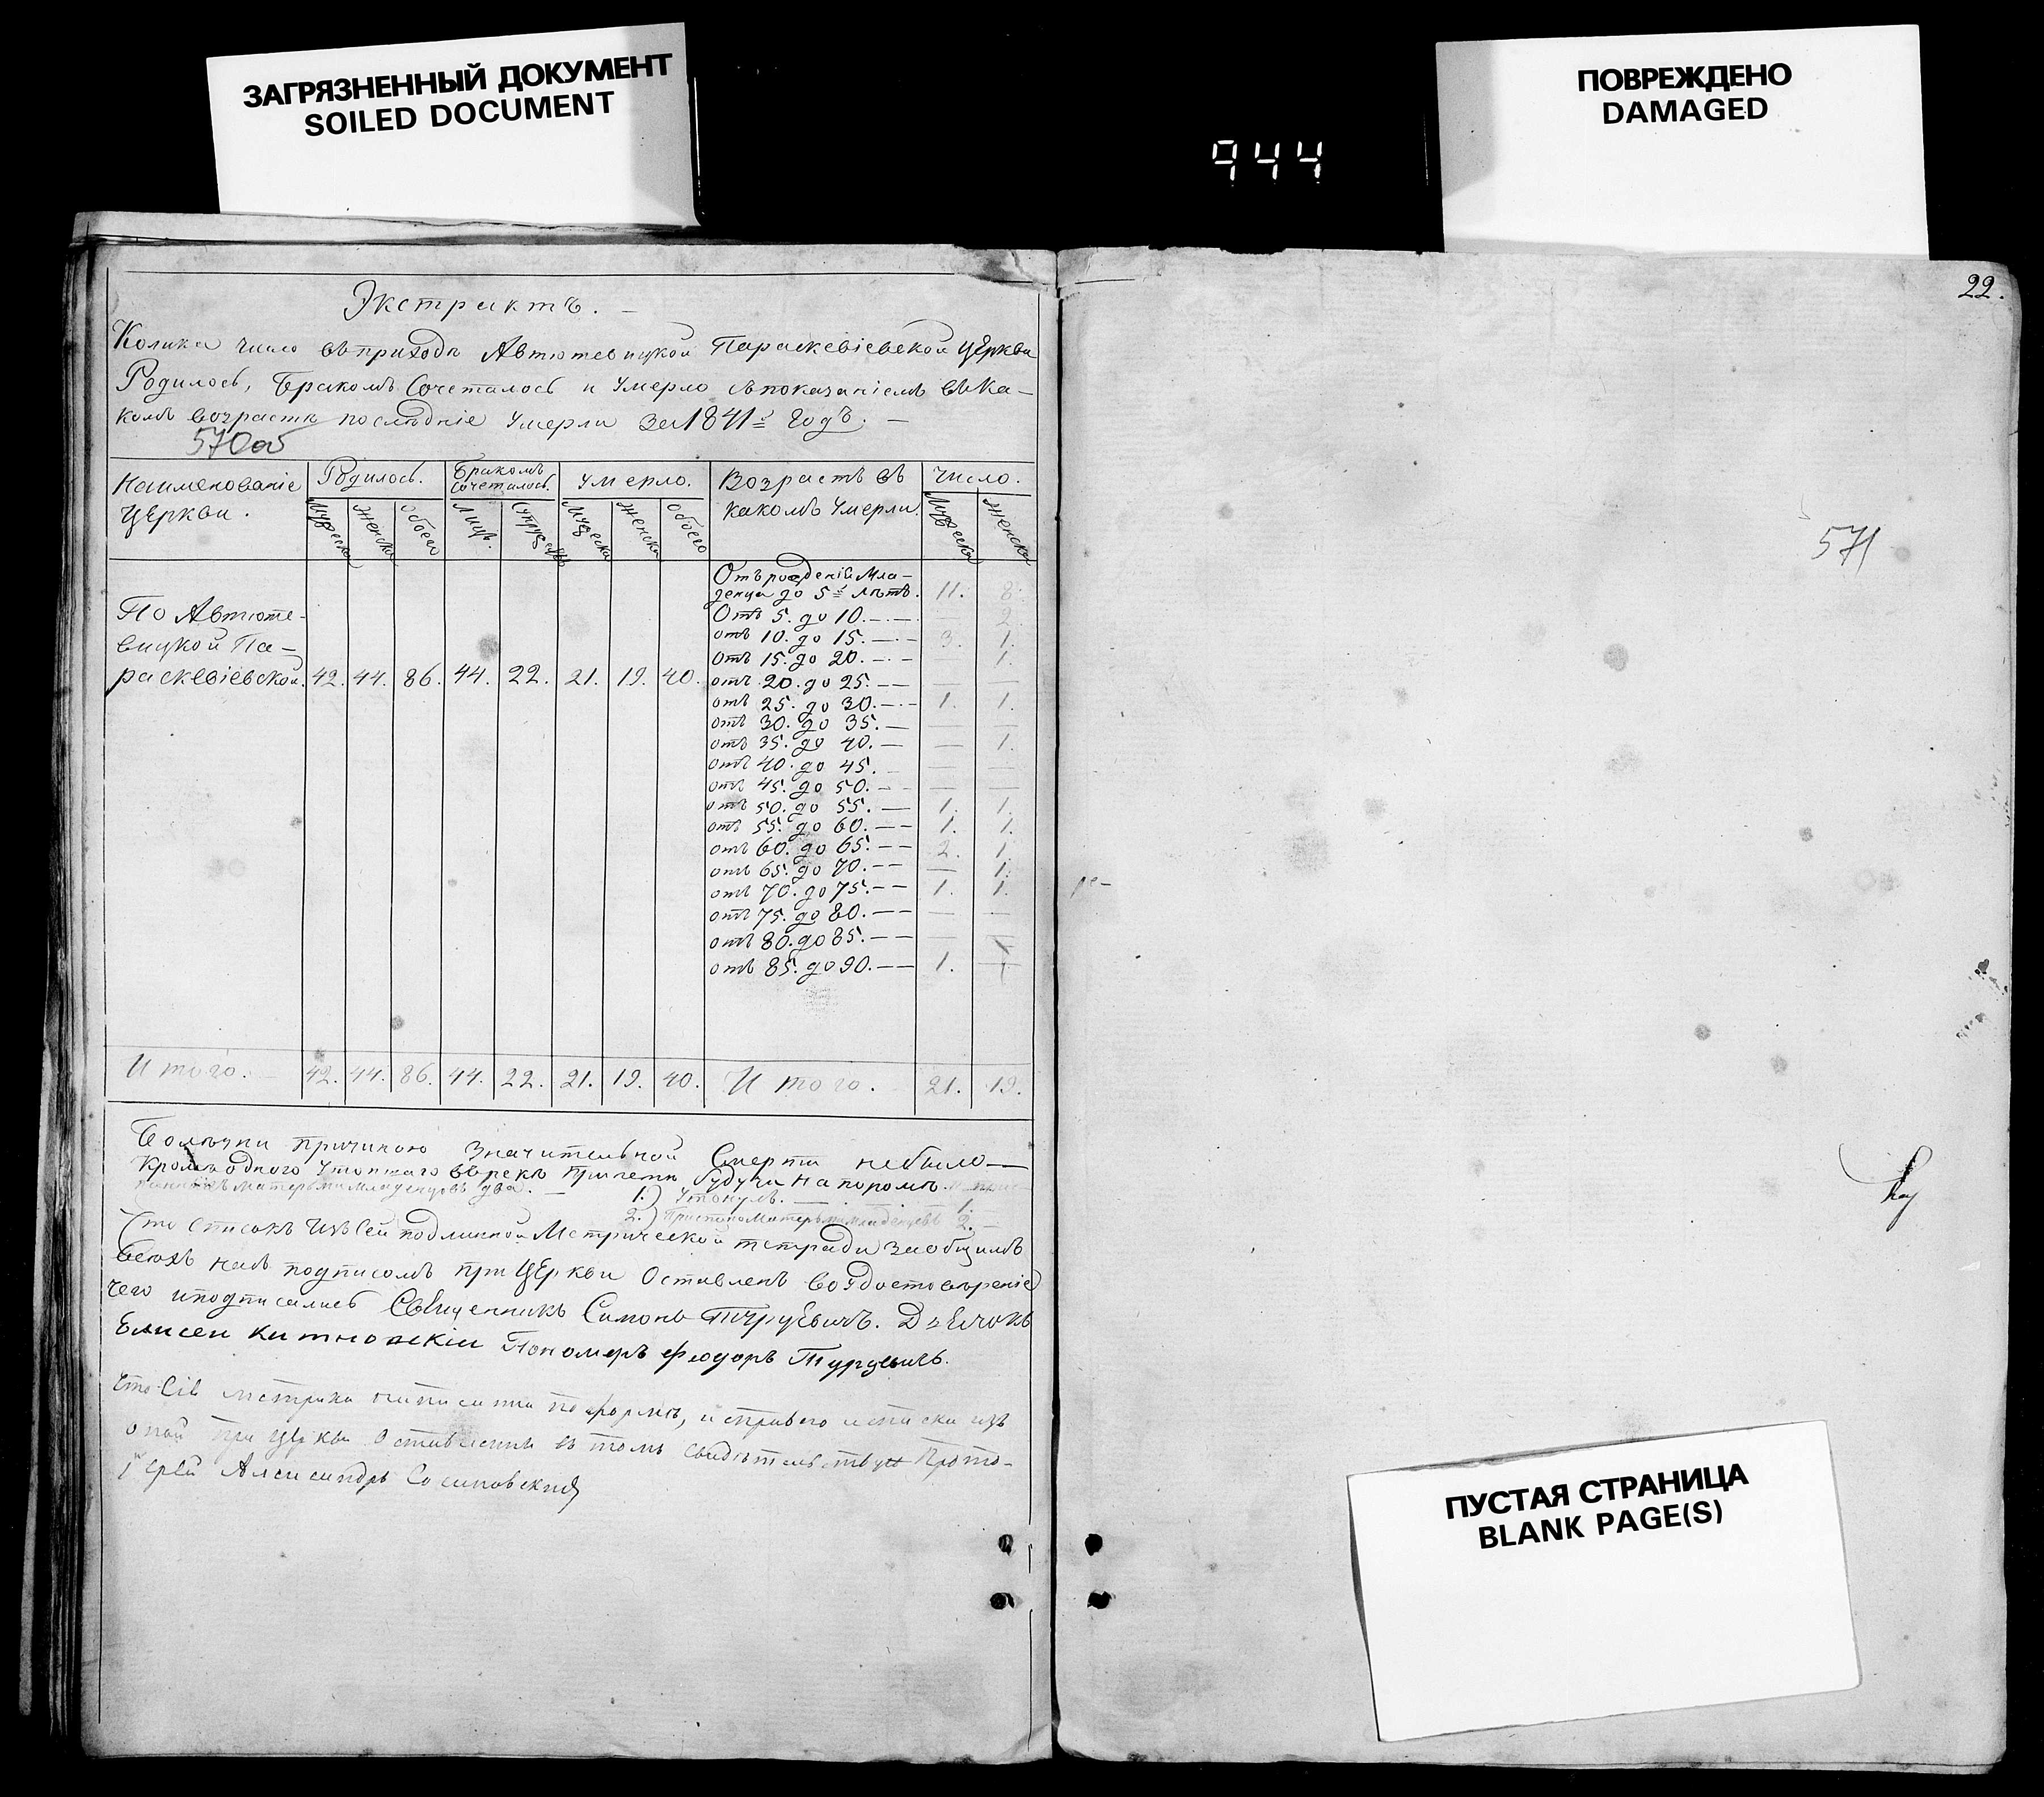 ЗАГРЯЗНЕННЫЙ ДОКУМЕНТ
SOILED DOCUMENT
ПОВРЕЖДЕНО
DAMAGED
944
22.
Экстрактъ. —
Колика число въ приходѣ Автютевицкой Параскевіевской Церкви
Родилось, Бракомъ Сочеталось и Умерло съ показаніемъ въ ка–
комъ возрастѣ послѣдніе Умерли за 1841й Годъ. —
570об
Наименованіе Церкви. Родилось. Бракомъ сочеталось. Умерло. Возрастъ въ какомъ Умерли. Число.
Мужеска Женска Обоего Лицъ. Супружествъ Мужеска Женска Обоего Мужеска Женска
Отъ рожденія Мла–
денца до 5й лѣтъ. 11. 8.
Отъ 5. до 10. — 2.
отъ 10. до 15. 3. 1.
Отъ 15. до 20. — 1.
отъ 20. до 25. — —
отъ 25. до 30. 1. 1.
отъ 30. до 35. — —
отъ 35. до 40. — 1.
отъ 40. до 45. — —
отъ 45. до 50. — —
отъ 50. до 55. 1. 1.
отъ 55. до 60. 1. 1.
отъ 60. до 65. 2. 1.
отъ 65. до 70. — 1.
отъ 70. до 75. 1. 1.
отъ 75. до 80. — —
отъ 80. до 85. —
отъ 85. до 90. 1.
По Автюте–
вицкой Па–
раскевіевской. 42. 44. 86. 44. 22. 21. 19. 40.
Итого. 42. 44. 86. 44. 22. 21. 19. 40. Итого. 21. 19.
причиною значительной Смерти небыло —
Кромѣ одного Утопшаго въ рекѣ Припети будучи на поромѣ
матерьми младенцовъ два. — 1.) Утонулъ. — 1.
2.) матерьми младенцевъ 2. —
Что Списокъ изъ Сей подлинной Метрической тетради за общимъ
всехъ насъ подписомъ при Церкви Оставленъ
чего и подписались Священникъ Симонъ Турцевичъ. Дьячокъ
Елисей Пономаръ Феодоръ Турцевичъ.
Что Сія метрика написанна по формѣ, и
оной при Церкви Оставленны въ томъ Свидѣтельствую Прото–
Іерей Александръ
571
ПУСТАЯ СТРАНИЦА
BLANK PAGE(S)